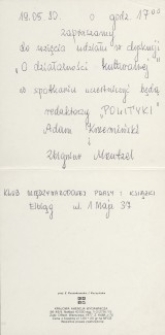 18.05.80. o godz. 17.00
zapraszamy
do wzięcia udziału w dyskusji
"O działalności kulturalnej"
w spotkaniu uczestniczyć będą
redaktorzy "POLITYKI"
Adam Krzemiński i
Zbigniew Mentzel
KLUB MIĘDZYNARODOWEJ PRASY I KSIĄŻKI
Elbląg ul. 1 Maja 37